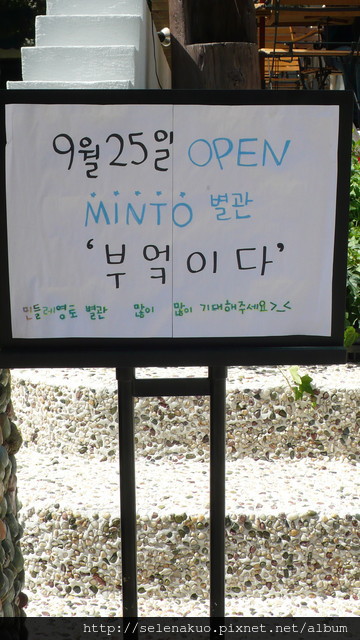 9월 25일 OPEN
MINTO 별관
'부엌이다'
민들레영토 별관 많이 많이 기대해주세요>_<
http://selenakuo.pixnet.net/album